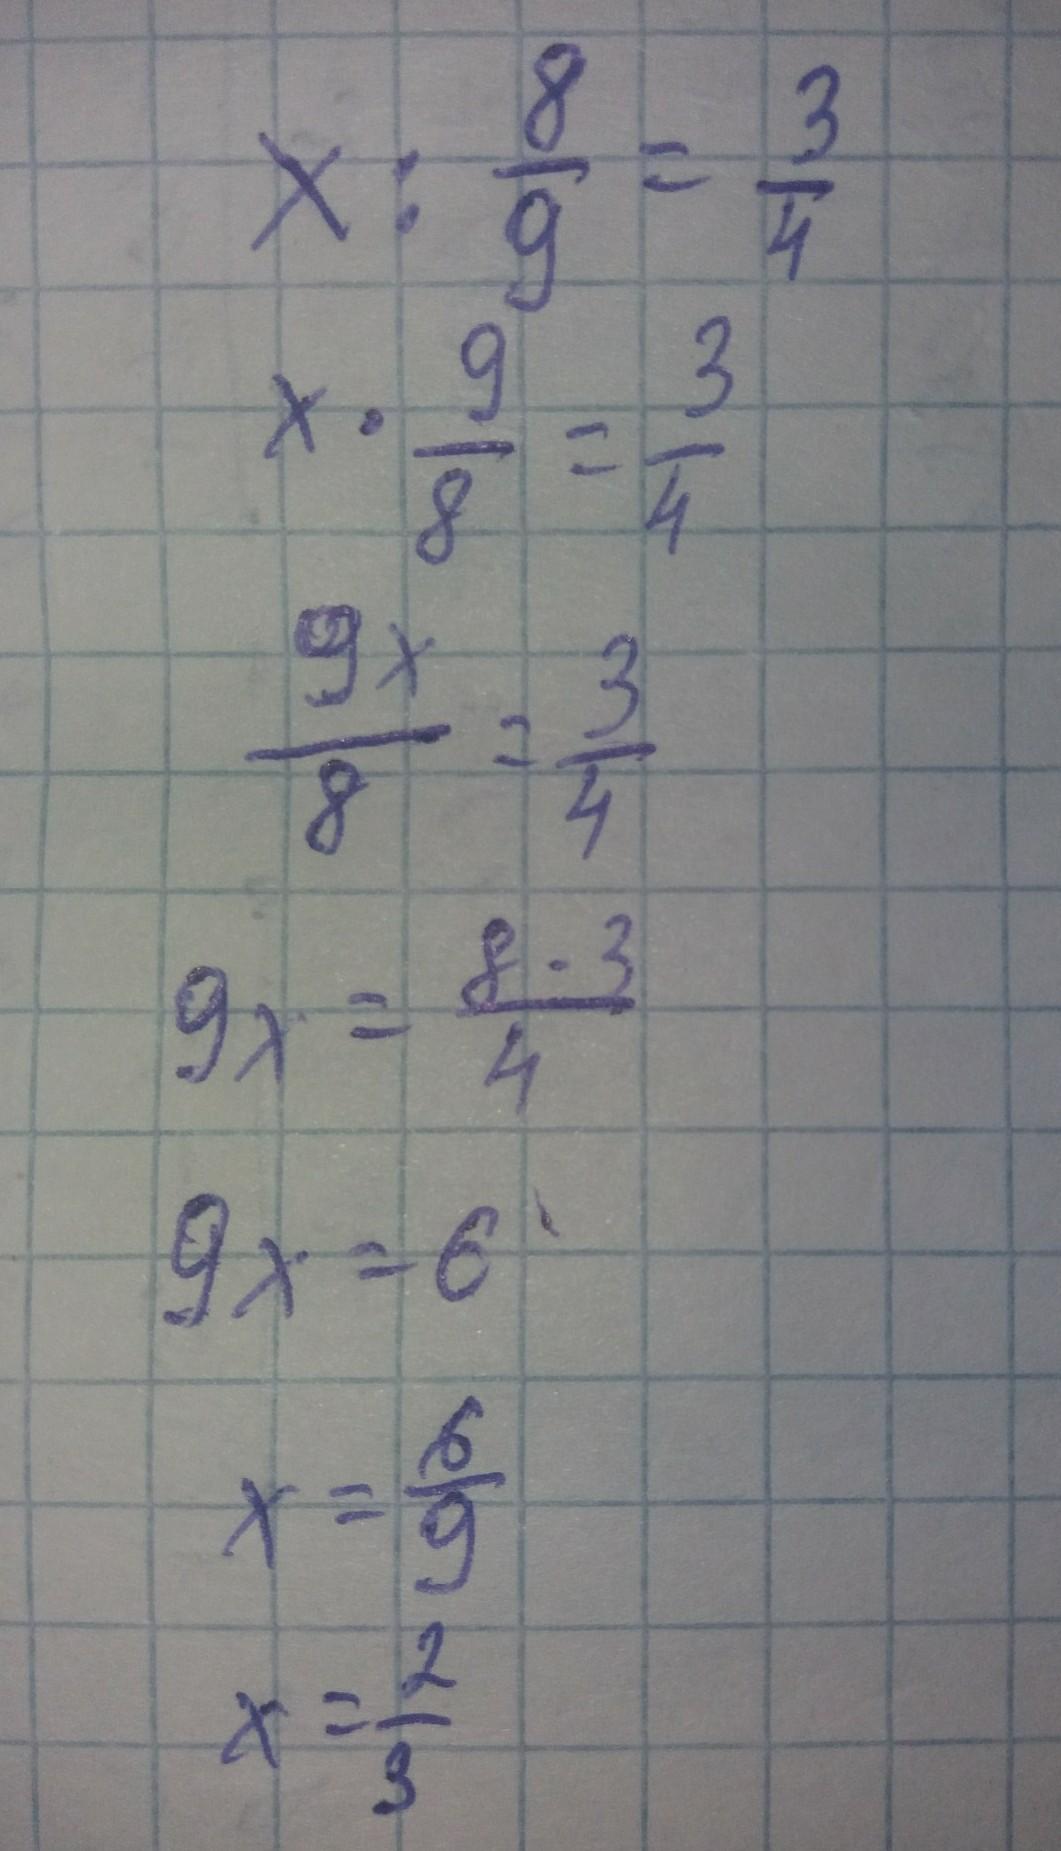 x : 8/9 = 3/4
x · 9/8 = 3/4
9x/8 = 3/4
9x = 8·3/4
9x = 6
x = 6/9
x = 2/3